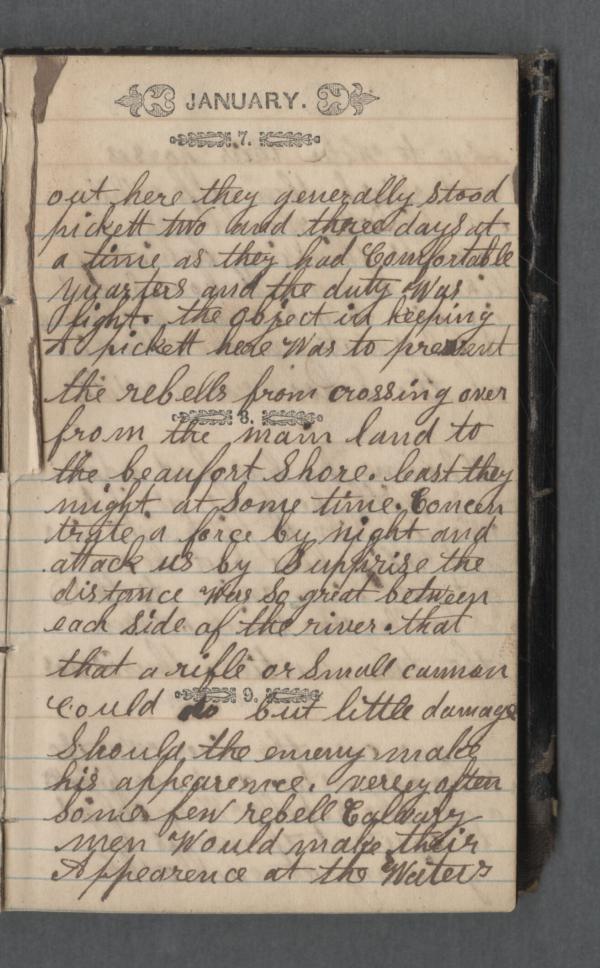 JANUARY.
7.
out here they generally stood
pickett two and three days at
a time as they had Comfortable
yuarters and the duty Was
light. the object in keeping
A pickett here Was to prevent
the rebells from crossing over
8.
from the main land to
the beaufort Shore. least they
might at Some time. Concen
trate a force by night and
attack us by Supprise the
distance Was So great between
each Side of the river. that
that a rifle or Small cannon
9.
Could do but little damage
Should the enemy make
his appearence. verey often
some few rebell Calvary
men Would make their
Appearence at the Waters